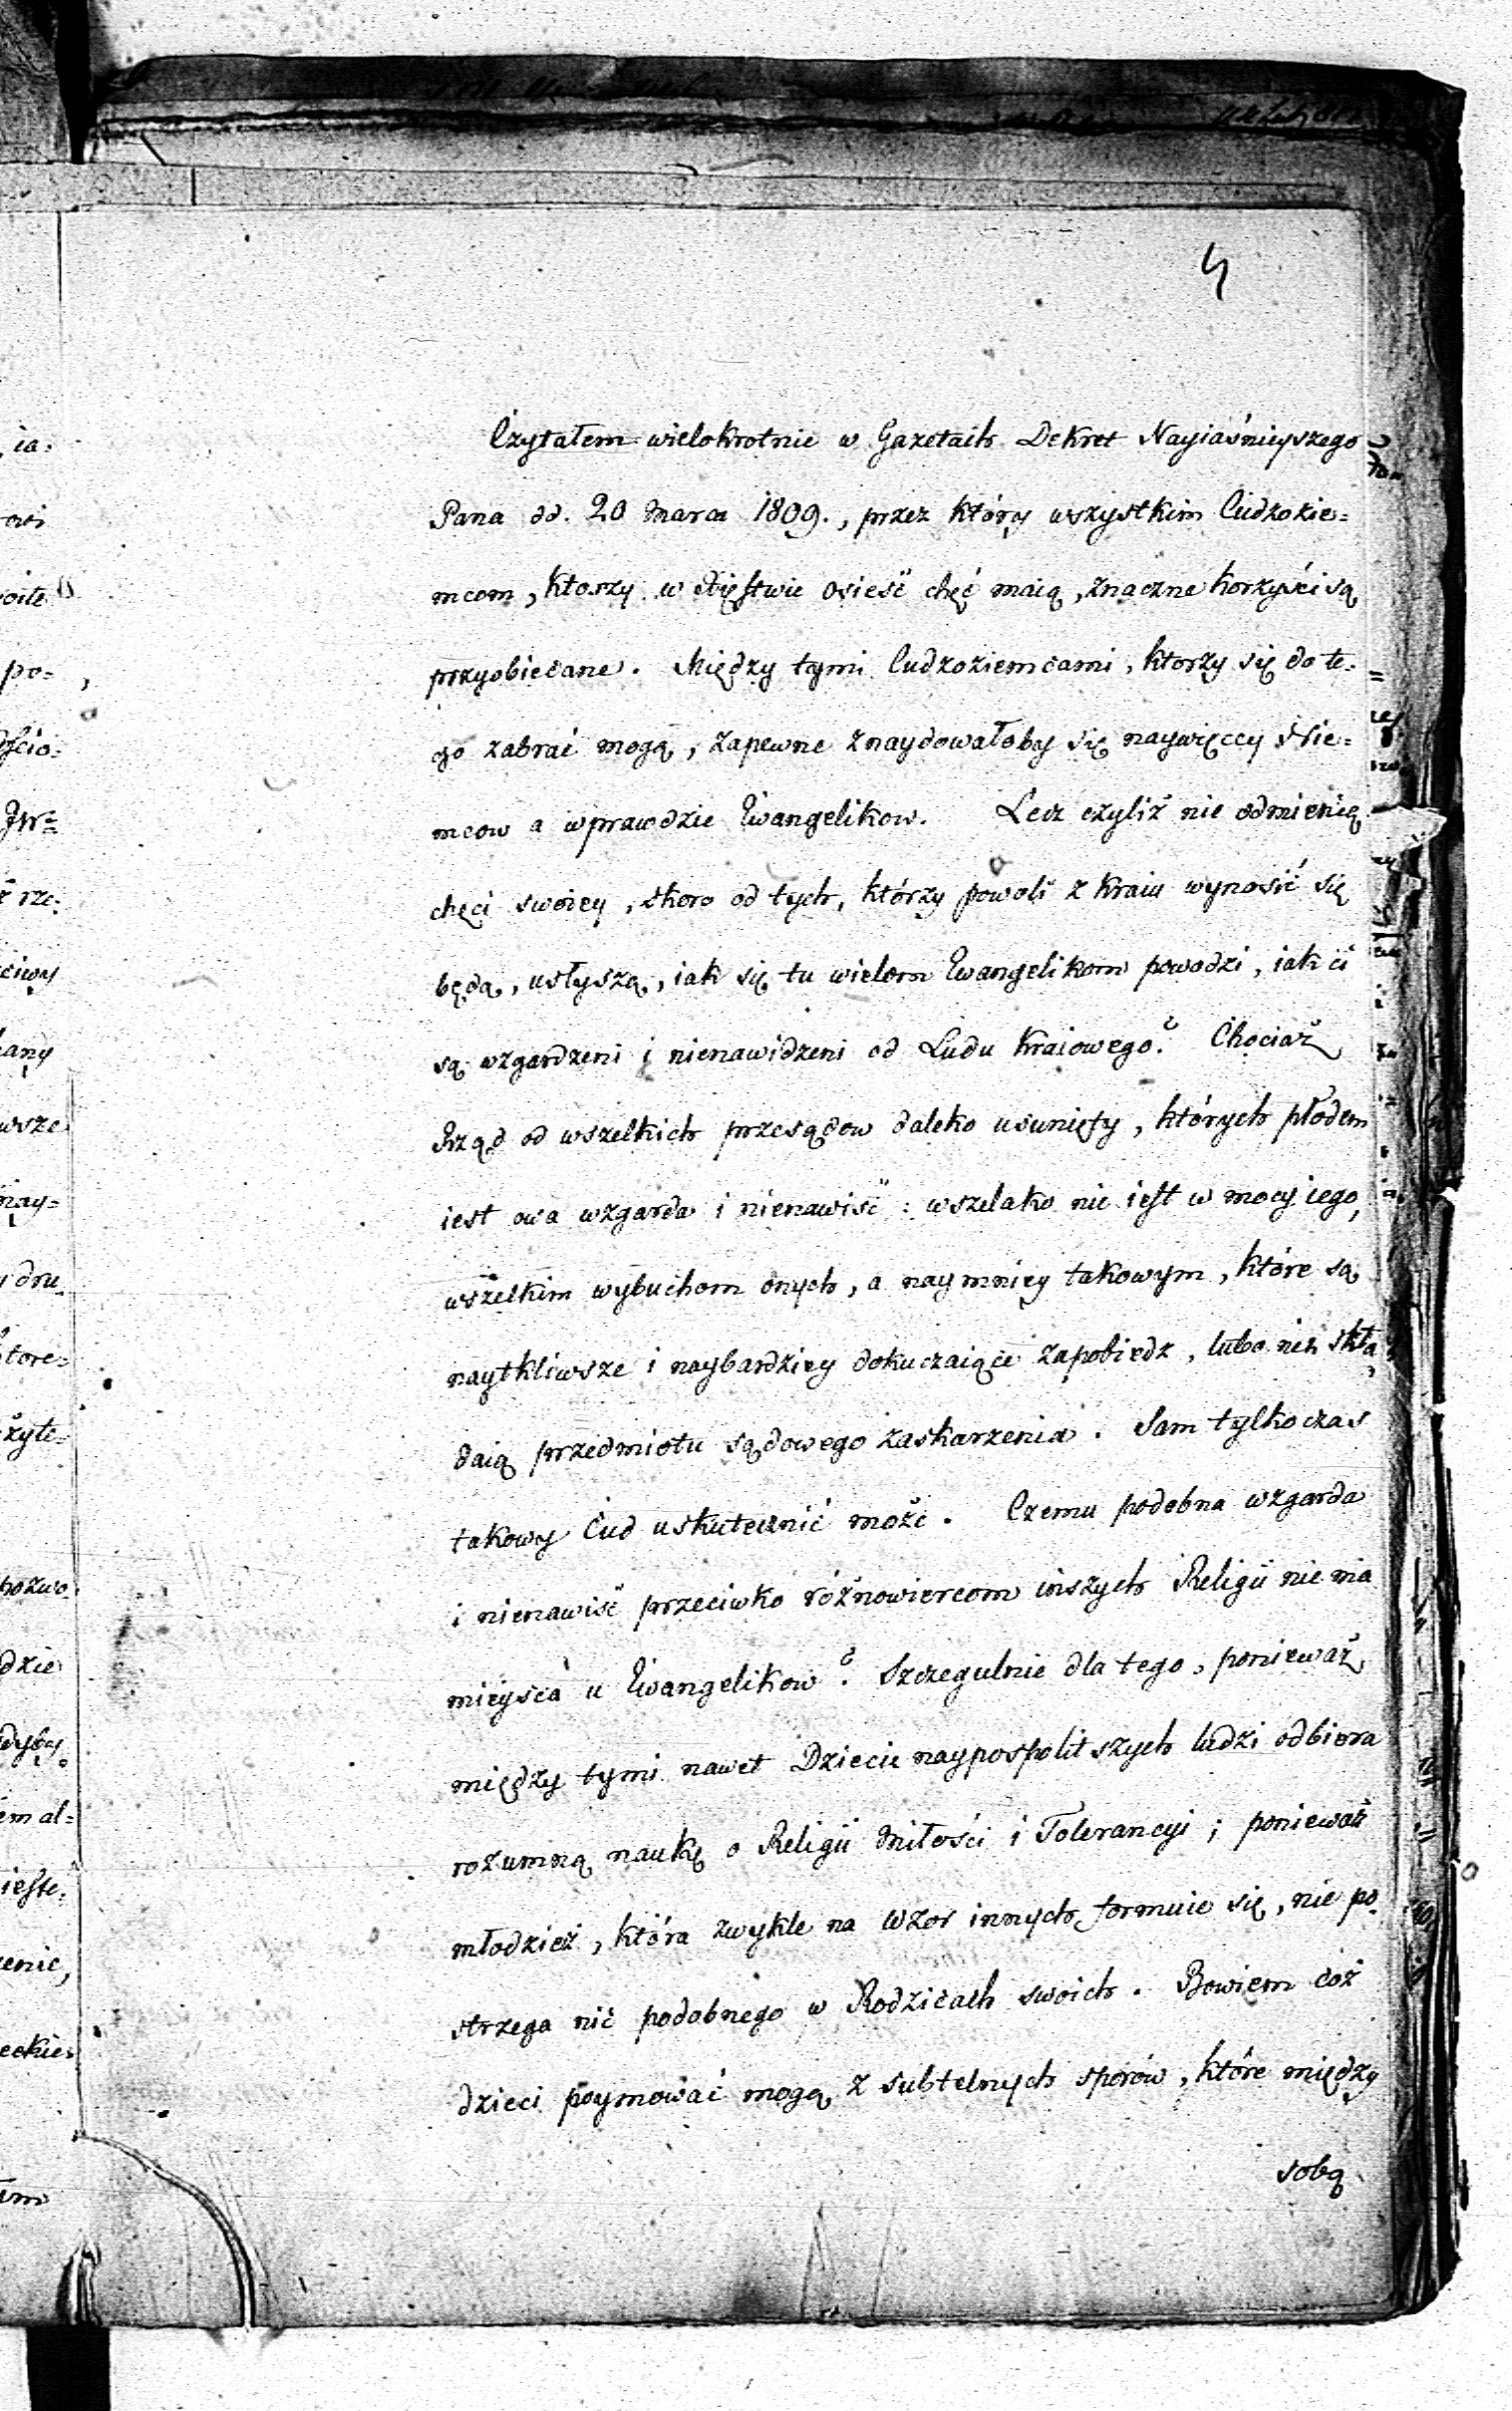 4
Czytałem wielokrotnie w Gazetach Dekret Nayiaśnieyszego
Pana dd. 20 Marca 1809., przez który wszystkim Cudzozie=
mcom, ktorzy w Xięstwie osieść chęć maią, znaczne korzyści są
przyobiecane. Między tymi Cudzoziemcami, ktorzy się do te=
go zabrać mogą, zapewne znaydowałoby się naywięcey Nie=
mcow a wprawdzie Ewangelikow. Lecz czyliż nie odmienią
chęci swoiey, skoro od tych, którzy powoli z kraiu wynosić się
będą, usłyszą, iak się tu wielom Ewangelikom powodzi, iak ci
są wzgardzeni i nienawidzeni od Ludu kraiowego? Chociaż
Rząd od wszelkich przesądow daleko usunięty, których płodem
iest owa wzgarda i nienawiść: wszelako nie iest w mocy iego,
wszelkim wybuchom onych, a naymniey takowym, które są
naytkliwsze i naybardziey dokuczaiące zapobiedz, lubo nie skła
daią przedmiotu sądowego zaskarzenia. Sam tylko czas
takowy Cud uskutecznić może. Czemu podobna wzgarda
i nienawiść przeciwko różnowiercom inszych Religii nie ma
mieysca u Ewangelikow? Szczegulnie dla tego, ponieważ
między tymi nawet Dziecie naypospolitszych ludzi odbiera
rozumną naukę o Religii Miłości i Tolerancyi; ponieważ
młodzież, która zwykle na wzor innych formuie się, nie po
strzega nic podobnego w Rodzicach swoich. Bowiem coż
dzieci poymować mogą z subtelnych sporów, które między
sobą